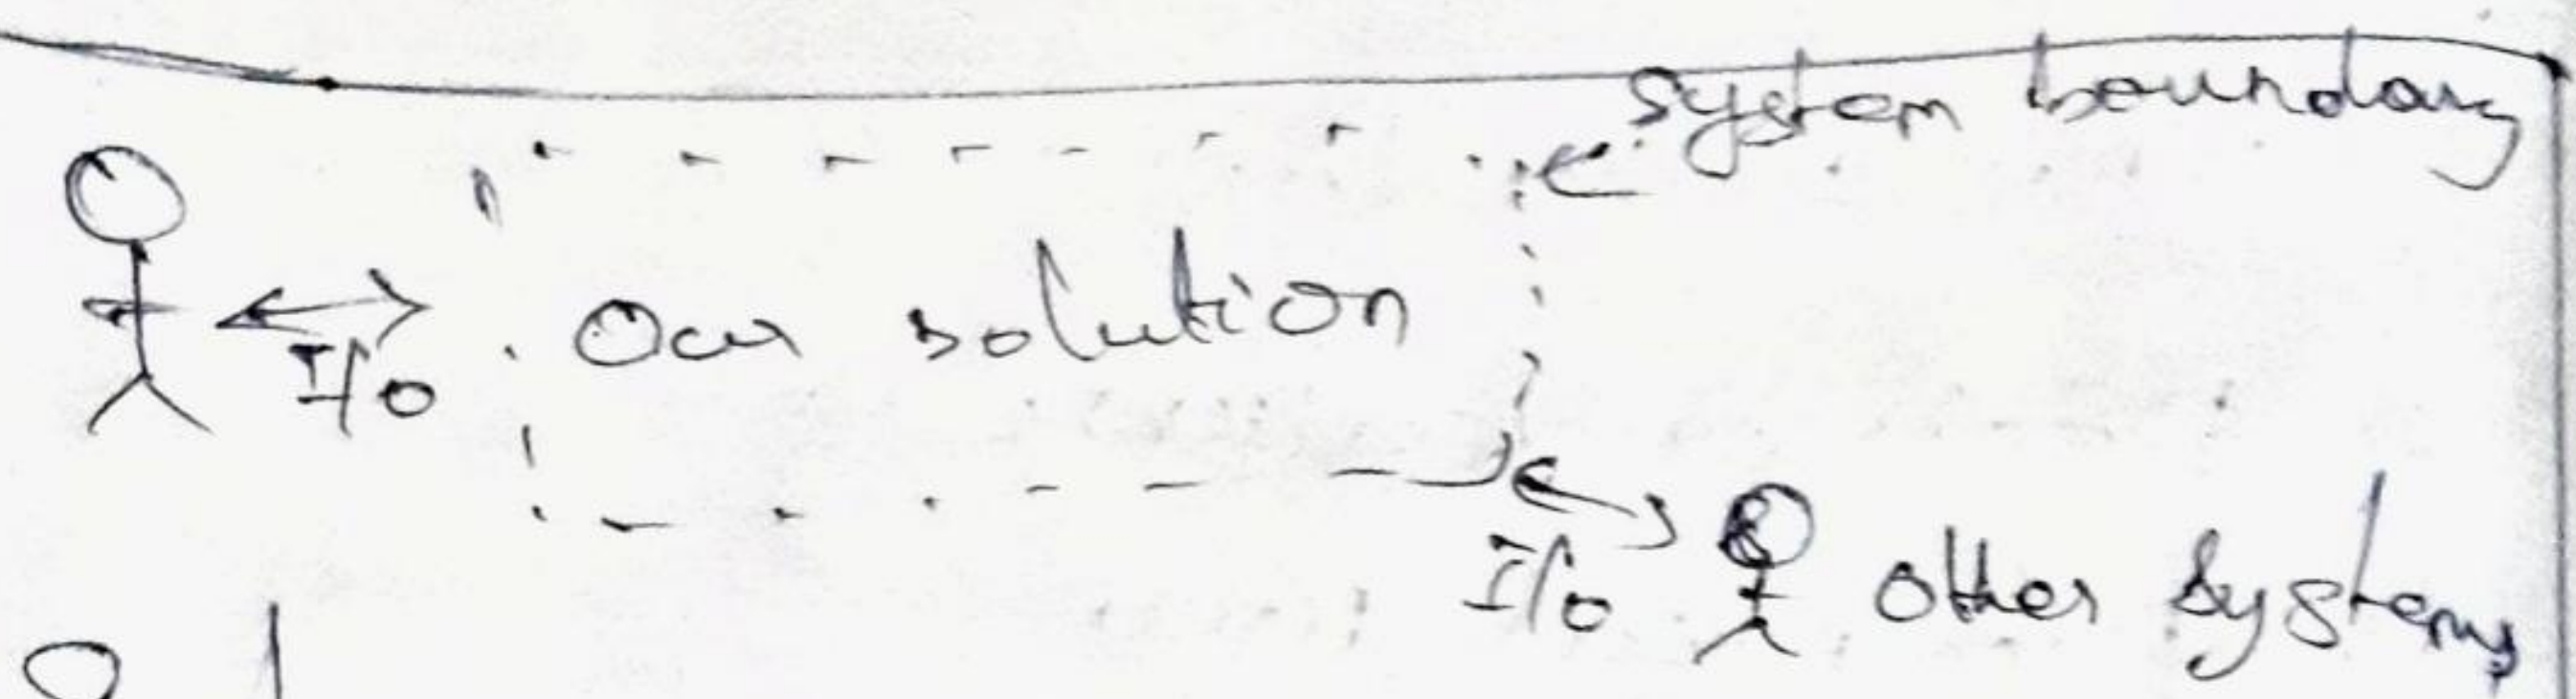 System boundary
Our solution
I/o
I/o
other systems